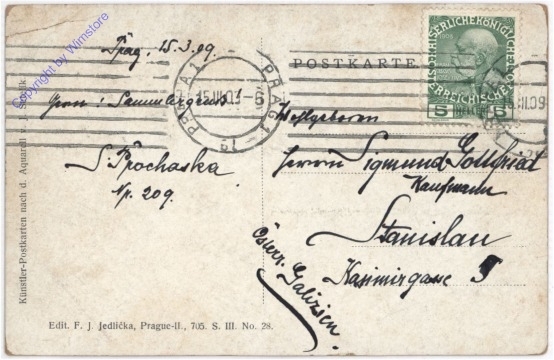 Copyright by Wimstore
Prag, 15.3.09.
S. Prochaska
Np. 209.
PRAG 1
15.III.09
PRAHA 1
POSTKARTE
5
5
Wohlgeboren
Herrn Sigmund Gottfried
Kaufmann
Stanislau
Kasimirgasse 5
Österr. Galizien.
Künstler-Postkarten nach d. Aquarell
Edit. F. J. Jedlička, Prague-II., 705. S. III. No. 28.